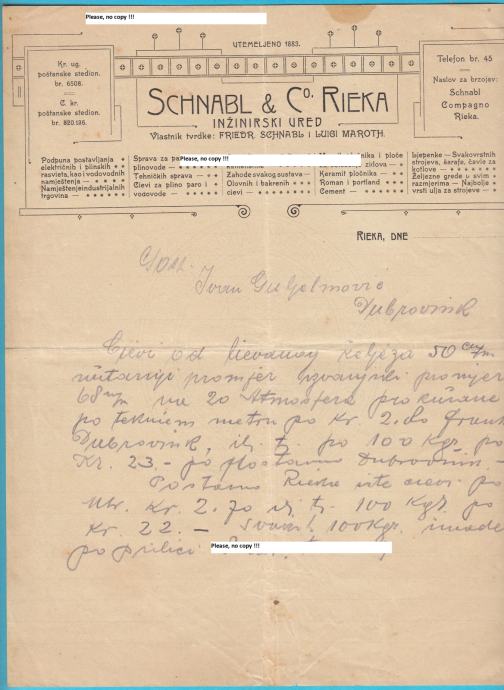 Please, no copy !!!
UTEMELJENO 1883.
Kr. ug.
poštanske štedion.
br. 6508.
C. kr.
poštanske štedion.
br. 820.136.
SCHNABL & CO. RIEKA
INŽINIRSKI URED
Vlastnik tvrdke: FRIEDR. SCHNABL i LUIGI MAROTH.
Telefon br. 45
Naslov za brzojev:
Schnabl
Compagno
Rieka.
Podpuna postavljanja
električnih i plinskih
rasvieta, kao i vodovodnih
namještenja
Namještenja industrijalnih
trgovina
Sprava za
plinovode
Tehničkih sprava
Cievi za plino paro i
vodovode
Please, no copy !!!
Zahode svakog sustava
Olovnih i bakrenih
cievi
i ploče
zidova
Keramit pločnika
Roman i portland
Cement
Svakovrstnih
strojeva, šarafe, čavle za
kotlove
Željezne grede u svim
razmjerima — Najbolje
vrsti ulja za strojeve
RIEKA, DNE
Gosp.
Ivan Guljelmović
Dubrovnik
Cievi od lievanog željeza 50 c/m
nutarnji promjer izvanjski promjer
68 m/m na 20 Atmosfera prokušane
po tekućem metru po Kr. 2. do
Dubrovnik, ili t. po 100 Kgr. po
Kr. 23.- po Dubrovnik.-
Postavno Rieka iste cievi po
Mtr. Kr. 2.70 ili t. 100 Kgr. po
Kr. 22.- 100 Kgr. imade
po prilici
Please, no copy !!!